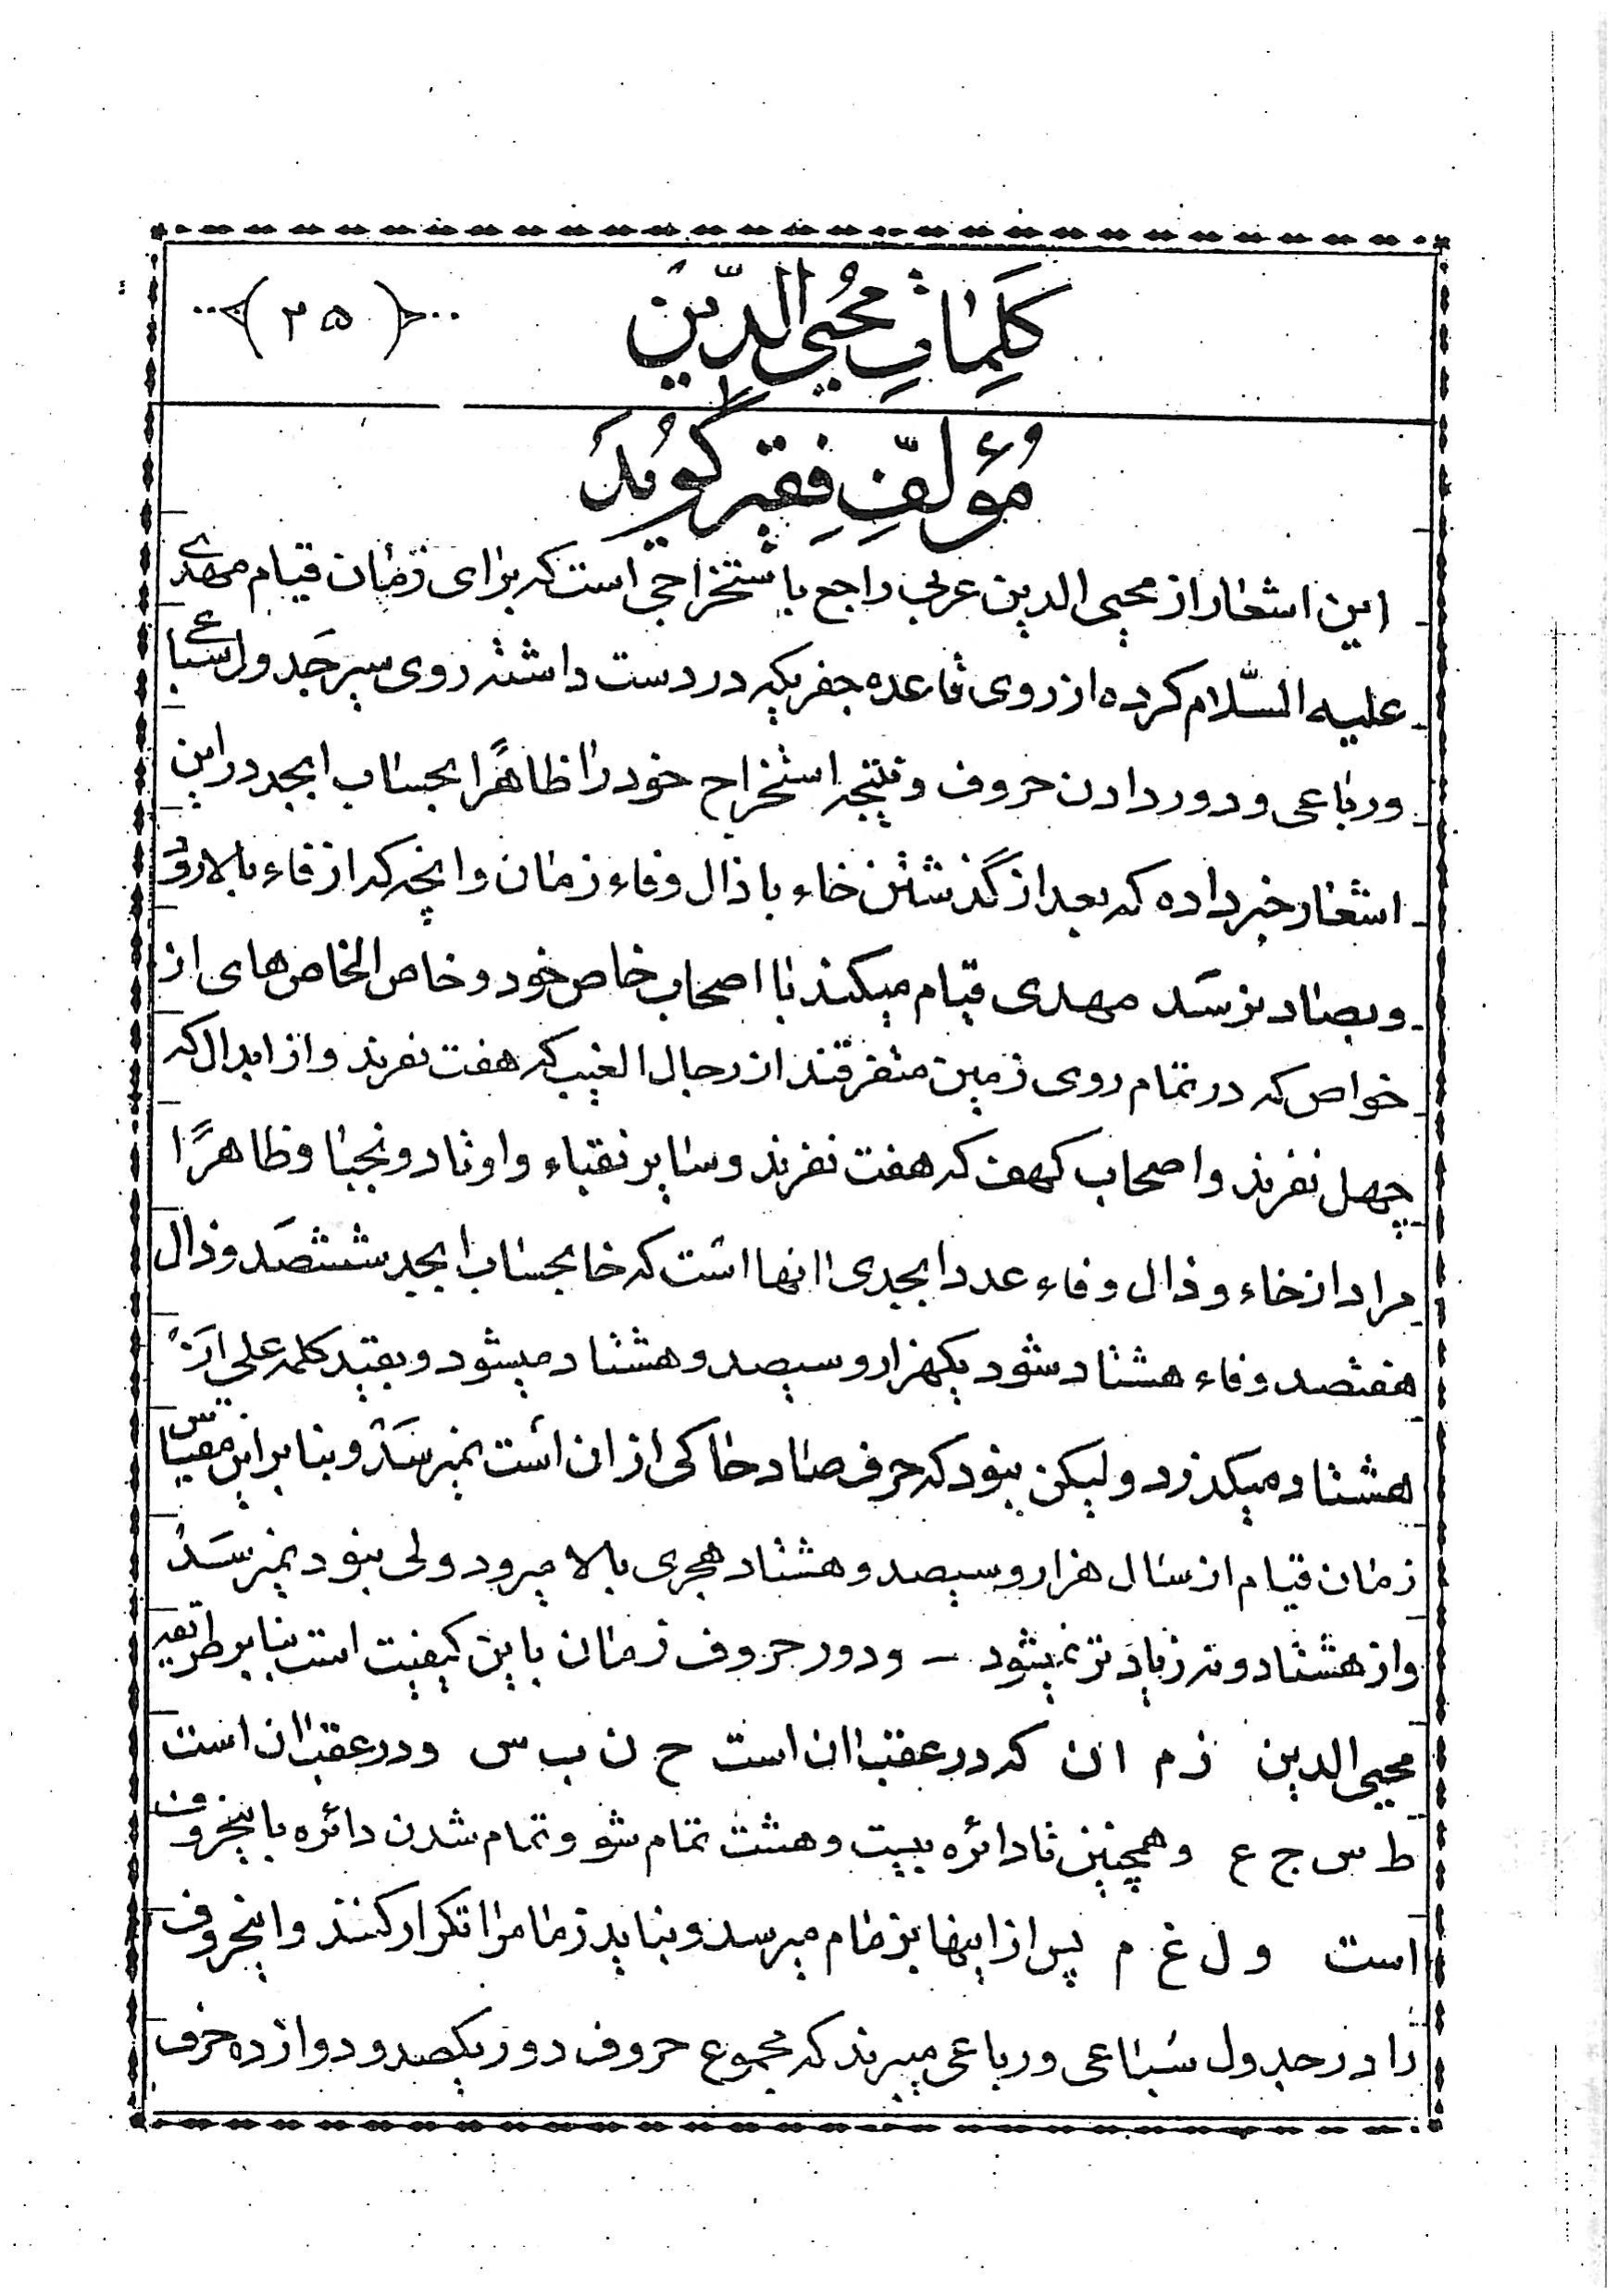 کلمات محیی الدین
(۲۵)
مؤلف فقیر گوید
این اشعار از محیی الدین عربی راجع باستخراجی است که برای زمان قیام مهدی
علیه السّلام کرده از روی قاعده جفریکه در دست داشته روی سیر جدول سباعی
و رباعی و دور دادن حروف و نتیجه استخراج خود را ظاهرًا بحساب ابجد در این
اشعار خبر داده که بعد از گذشتن خاء با ذال و فاء زمان و انچه که از فاء بالا رود
و بصاد نرسد مهدی قیام میکند با اصحاب خاص خود و خاص الخاص های از
خواص که در تمام روی زمین متفرقند از رجال الغیب که هفت نفرند و از ابدال که
چهل نفرند و اصحاب کهف که هفت نفرند و سایر نقباء و اوتاد و نجبا و ظاهرًا
مراد از خاء و ذال و فاء عدد ابجدی انها است که خا بحساب ابجد ششصد و ذال
هفتصد و فاء هشتاد شود یکهزار و سیصد و هشتاد میشود و بقید کلمه علی از
هشتاد میگذرد و لیکن بنود که حرف صاد حاکی از ان است نمیرسد و بنا بر این مقیاس
زمان قیام از سال هزار و سیصد و هشتاد هجری بالا میرود ولی بنود نمیرسد
و از هشتاد و نه زیاد تر نمیشود – و دور حروف زمان باین کیفیت است بنا بر طریقه
محیی الدین ز م ا ن که در عقب ان است ح ن ب س و در عقب ان است
ط س ج ع و همچنین تا دائره بیست و هشت تمام شو و تمام شدن دائره باینحروف
است و ل غ م پس از اینها بزمام میرسد و نباید زمام را تکرار کنند و اینحروف
را در جدول سباعی و رباعی میبرند که مجموع حروف دور یکصد و دوازده حرف